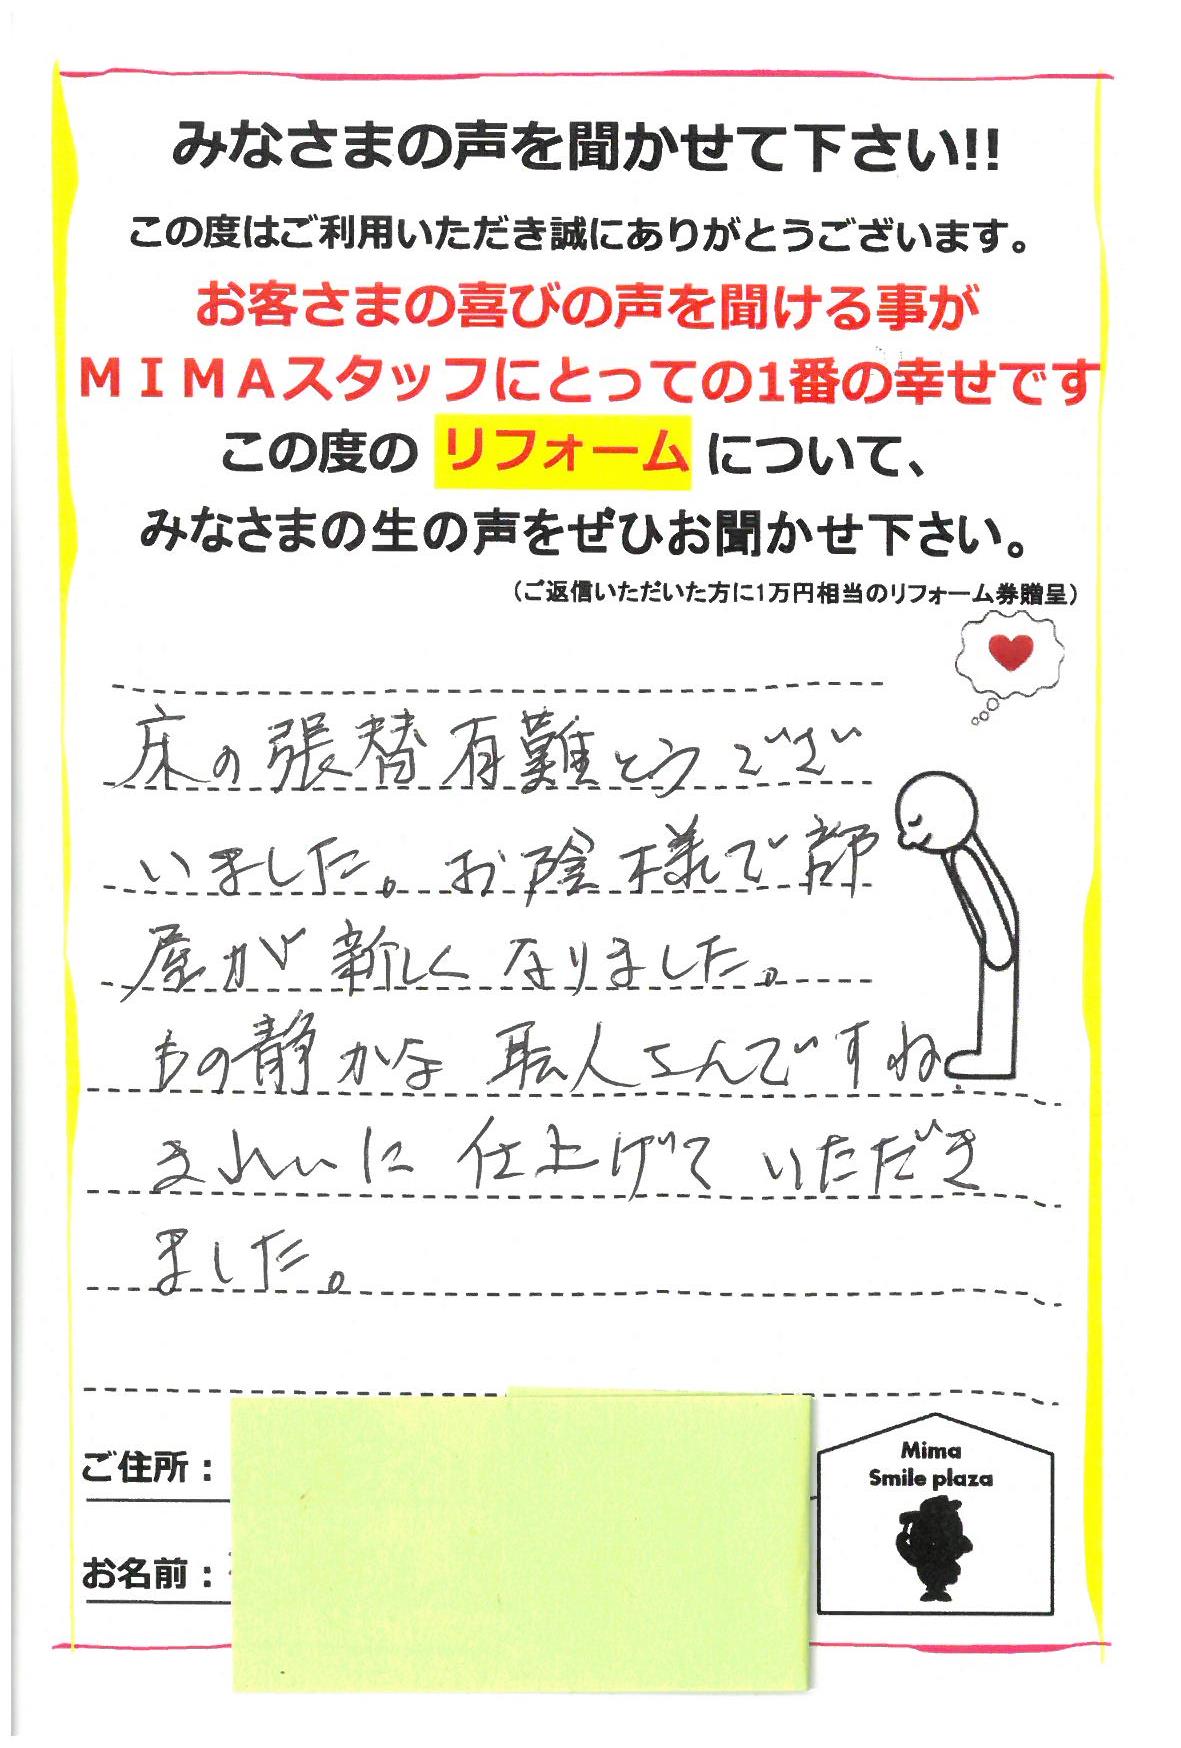 みなさまの声を聞かせて下さい!!
この度はご利用いただき誠にありがとうございます。
お客さまの喜びの声を聞ける事が
MIMAスタッフにとっての1番の幸せです
この度の リフォーム について、
みなさまの生の声をぜひお聞かせ下さい。
(ご返信いただいた方に1万円相当のリフォーム券贈呈)
床の張替有難とうござ
いました。お陰様で部
屋が新しくなりました。
もの静かな職人さんですね。
きれいに仕上げていただき
ました。
ご住所:
お名前:
Mima
Smile plaza